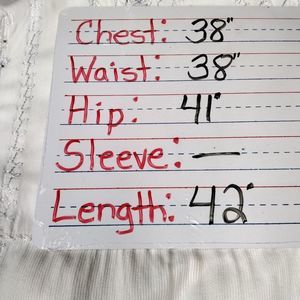 Chest: 38"
Waist: 38"
Hip: 41"
Sleeve: —
Length: 42"